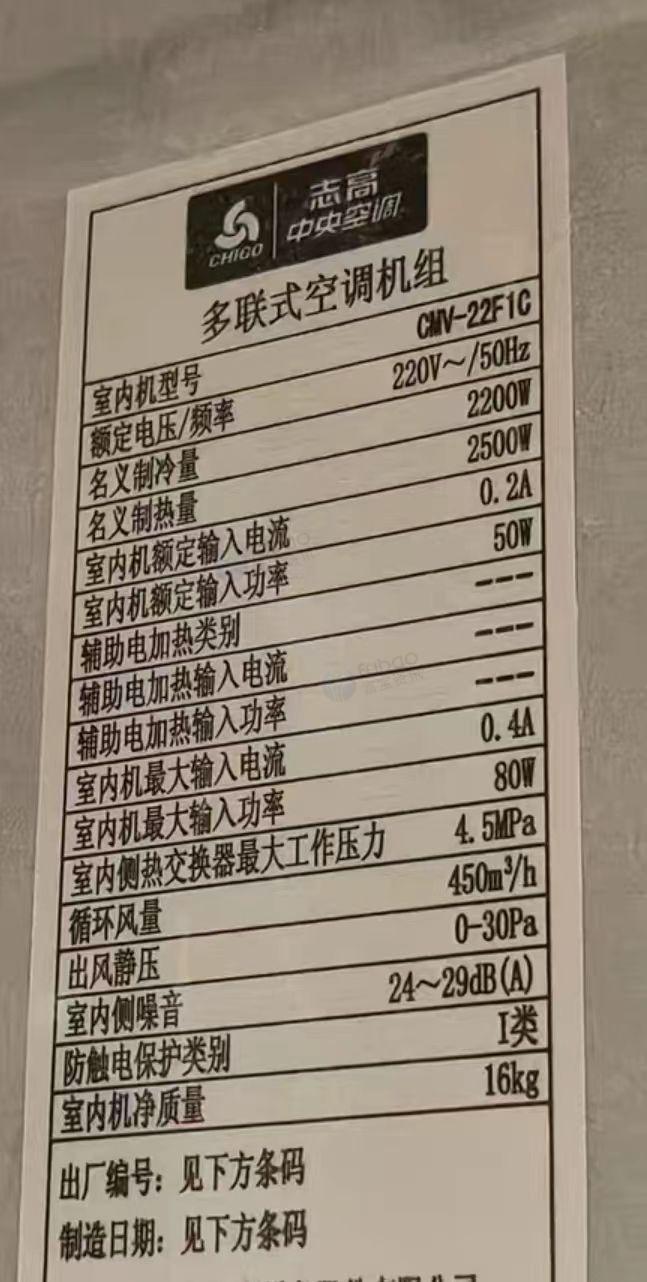 志高
中央空调
CHIGO
多联式空调机组
室内机型号 CMV-22F1C
额定电压/频率 220V～/50Hz
名义制冷量 2200W
名义制热量 2500W
室内机额定输入电流 0.2A
室内机额定输入功率 50W
辅助电加热类别 ---
辅助电加热输入电流 ---
辅助电加热输入功率 ---
室内机最大输入电流 0.4A
室内机最大输入功率 80W
室内侧热交换器最大工作压力 4.5MPa
循环风量 450m³/h
出风静压 0-30Pa
室内侧噪音 24～29dB(A)
防触电保护类别 I类
室内机净质量 16kg
出厂编号：见下方条码
制造日期：见下方条码
fabao